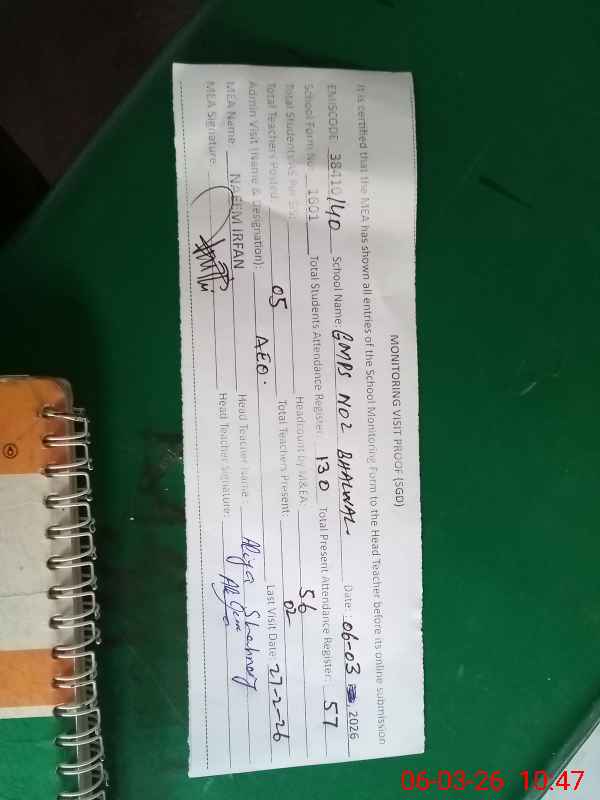 MONITORING VISIT PROOF (SGD)
It is certified that the MEA has shown all entries of the School Monitoring Form to the Head Teacher before its online submission
EMISCODE 38410140 School Name: GMPS NO2 BHALWAL Date: 06-03, 2026
School Form No 1601 Total Students Attendance Register: 130 Total Present Attendance Register: 57
Total Students AS Per SIS: Headcount by M&EA: 56
Total Teachers Posted: 05 Total Teachers Present: 02
Admin Visit (Name & Designation): AEO. Last Visit Date: 27-2-26
MEA Name: NAEEM IRFAN Head Teacher Name: Aliya Shahnaz
MEA Signature: Head Teacher Signature:
06-03-26 10:47